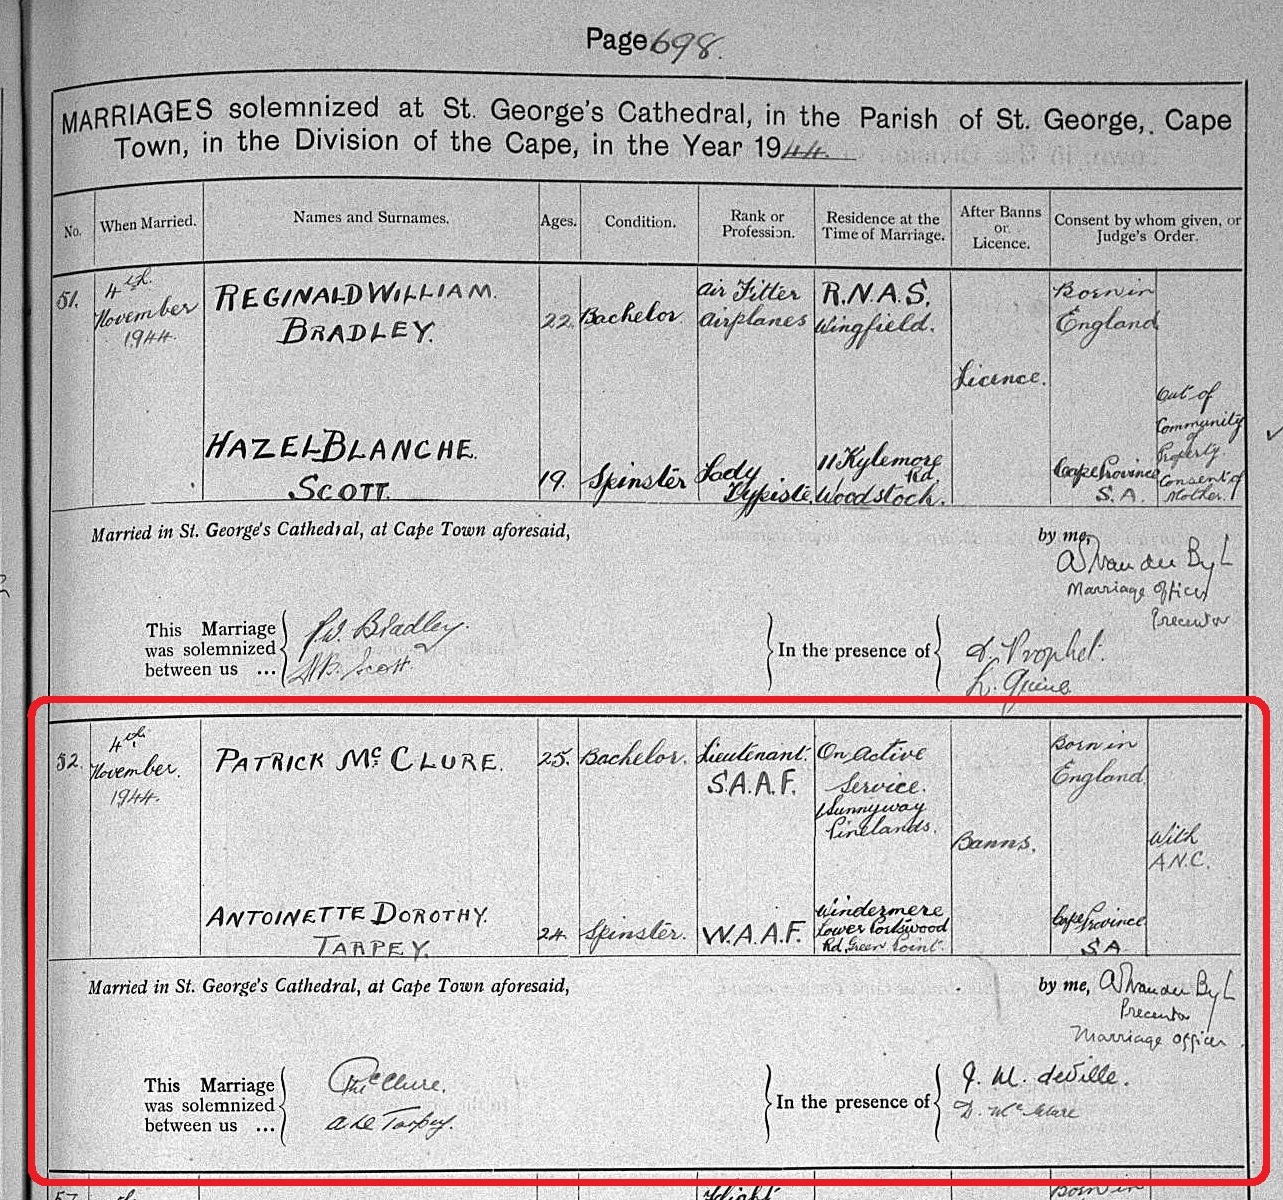 Page 698.
MARRIAGES solemnized at St. George's Cathedral, in the Parish of St. George, Cape
Town, in the Division of the Cape, in the Year 1944.
No.
When Married.
Names and Surnames.
Ages.
Condition.
Rank or
Profession.
Residence at the
Time of Marriage.
After Banns
or
Licence.
Consent by whom given, or
Judge's Order.
51.
4th
November
1944.
REGINALD WILLIAM
BRADLEY.
22.
Bachelor
Air Fitter
Airplanes
R.N.A.S.
Wingfield.
Licence.
Born in
England
HAZEL BLANCHE
SCOTT.
19.
Spinster
Lady
Typiste.
11 Kylemore
Rd.
Woodstock.
Cape Province
S.A.
Out of
Community
of
Property
Consent of
Mother.
Married in St. George's Cathedral, at Cape Town aforesaid,
by me,
van der Byl
Marriage Officer
Precentor
This Marriage
was solemnized
between us ...
R.W. Bradley.
H.B. Scott
In the presence of
Prophet.
L.
52.
4th
November.
1944.
PATRICK McCLURE.
25.
Bachelor.
Lieutenant.
S.A.A.F.
On Active
Service.
1 Sunnyway
Pinelands.
Banns.
Born in
England
With
A.N.C.
ANTOINETTE DOROTHY
TARPEY.
24.
Spinster.
W.A.A.F.
Windermere
Lower Portswood
Rd. Green Point.
Cape Province
S A
Married in St. George's Cathedral, at Cape Town aforesaid,
by me, van der Byl
Precentor
Marriage Officer
This Marriage
was solemnized
between us ...
P McClure.
A D Tarpey.
In the presence of
J. M. deVille.
D. McClure
Flight
Born in